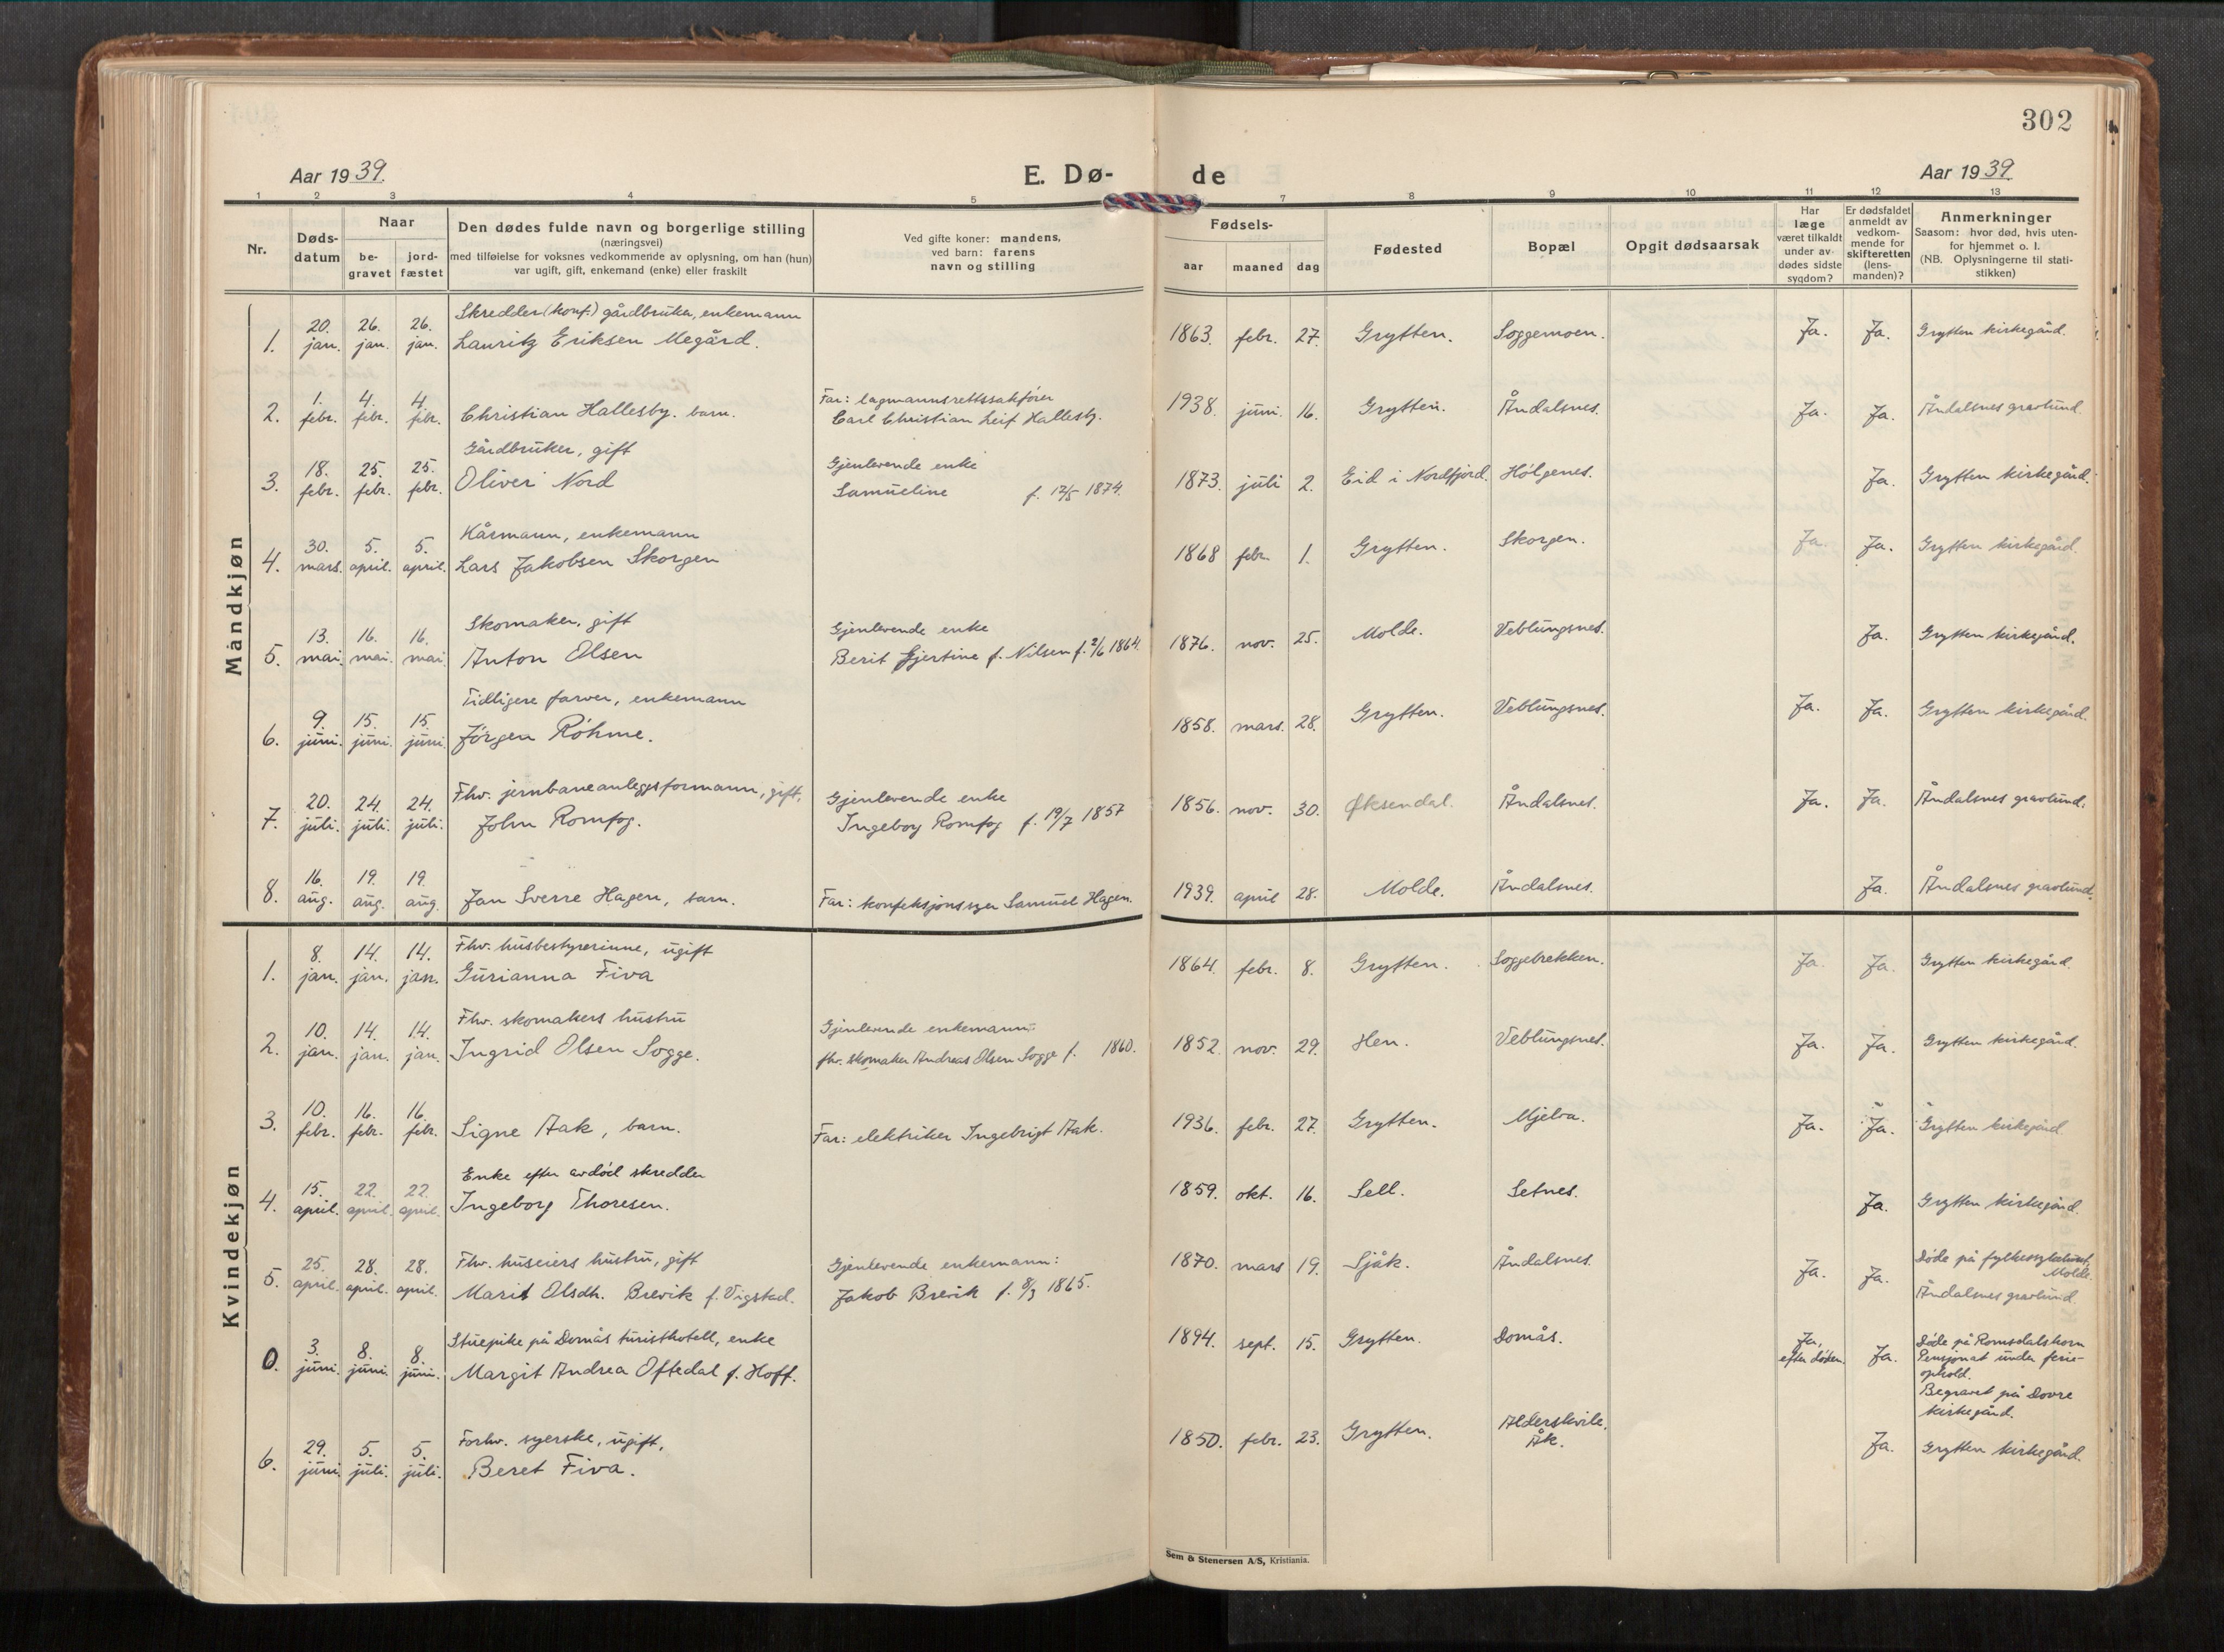 302
Aar 1939.
E. Dø-
de
Aar 1939.
1 2 3 4 5 7 8 9 10 11 12 13
Nr.
Døds-
datum
Naar
be-
gravet
jord-
fæstet
Den dødes fulde navn og borgerlige stilling
(næringsvei)
med tilføielse for voksnes vedkommende av oplysning, om han (hun)
var ugift, gift, enkemand (enke) eller fraskilt
Ved gifte koner: mandens,
ved barn: farens
navn og stilling
Fødsels-
aar maaned dag
Fødested
Bopæl
Opgit dødsaarsak
Har
læge
været tilkaldt
under av-
dødes sidste
sygdom?
Er dødsfaldet
anmeldt av
vedkom-
mende for
skifteretten
(lens-
manden)?
Anmerkninger
Saasom: hvor død, hvis uten-
for hjemmet o. l.
(NB. Oplysningerne til stati-
stikken)
Mandkjøn
Skredder (konf.) gårdbruker, enkemann
1. 20. jan. 26. jan. 26. jan. Lauritz Eriksen Megård. 1863. febr. 27. Grytten. Soggemoen. Ja. Ja. Grytten kirkegård.
Far: lagmannsrettssakfører
2. 1. febr. 4. febr. 4. febr. Christian Hallesby. barn. Carl Christian Leif Hallesby. 1938. juni. 16. Grytten. Åndalsnes. Ja. Ja. Åndalsnes gravlund.
Gårdbruker, gift Gjenlevende enke
3. 18. febr. 25. febr. 25. febr. Oliver Nord Samueline f. 12/5 1874. 1873. juli 2. Eid i Nordfjord. Holgenes. Ja. Grytten kirkegård.
Kårmann, enkemann
4. 30. mars. 5. april. 5. april. Lars Jakobsen Skorgen 1868 febr. 1. Grytten. Skorgen. Ja. Ja. Grytten kirkegård.
Skomaker, gift Gjenlevende enke
5. 13. mai. 16. mai. 16. mai Anton Olsen Berit Gjertine f. Nilsen f. 2/6 1864. 1876. nov. 25. Molde. Veblungsnes. Ja. Grytten kirkegård.
Tidligere farver, enkemann
6. 9. juni. 15. juni. 15. juni Jørgen Røhme. 1858. mars. 28. Grytten. Veblungsnes. Ja. Ja. Grytten kirkegård.
Fhv. jernbaneanleggsformann, gift. Gjenlevende enke
7. 20. juli. 24. juli. 24. juli. John Romfog. Ingeborg Romfog f. 19/7 1857 1856. nov. 30. Øksendal. Åndalsnes. Ja. Ja. Åndalsnes gravlund.
8. 16. aug. 19. aug. 19. aug. Jan Sverre Hagen, barn. Far: konfeksjonssyer Samuel Hagen. 1939. april 28. Molde. Åndalsnes. Ja. Åndalsnes gravlund.
Kvindekjøn
Fhv. husbestyrerinne, ugift
1. 8. jan. 14. jan. 14. jan. Gurianna Fiva 1864. febr. 8. Grytten. Soggebrekken. Ja. Ja. Grytten kirkegård.
Fhv. skomakers hustru Gjenlevende enkemann:
2. 10. jan. 14. jan. 14. jan. Ingrid Olsen Sogge. fhv. skomaker Andreas Olsen Sogge f. 1860. 1852. nov. 29. Hen. Veblungsnes. Ja. Ja. Grytten kirkegård.
3. 10. febr. 16. febr. 16. febr. Signe Aak, barn. Far: elektriker Ingebrigt Aak. 1936. febr. 27. Grytten. Mjelva. Ja. Ja. Grytten kirkegård.
Enke efter avdød skredder
4. 15. april. 22. april. 22. april. Ingeborg Thoresen. 1859. okt. 16. Sell. Setnes. Ja. Grytten kirkegård.
Fhv. huseiers hustru, gift Gjenlevende enkemann:
5. 25. april. 28. april. 28. april. Marit Olsdh. Brevik f. Vigstad. Jakob Brevik f. 8/3 1865. 1870. mars 19. Sjåk. Åndalsnes. Ja. Ja. Døde på fylkessykehuset, Molde. Åndalsnes gravlund.
Stuepike på Domås turisthotell, enke
0. 3. juni. 8. juni. 8. juni. Margit Andrea Oftedal f. Hoff. 1894. sept. 15. Grytten. Domås. Ja, efter døden. Ja. Døde på Romsdalshorn
Pensjonat under ferie-
ophold.
Begravet på Dovre
kirkegård.
Forhv. syerske, ugift,
6. 29. juni. 5. juli. 5. juli. Beret Fiva. 1850. febr. 23. Grytten. Alderskvile, Åk. Ja. Grytten kirkegård.
Sem & Stenersen A/S, Kristiania.